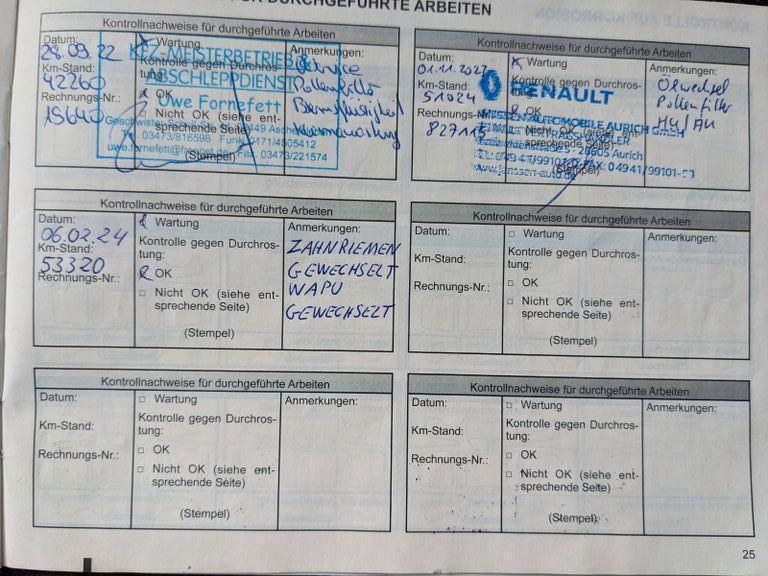 DURCHGEFÜHRTE ARBEITEN
Kontrollnachweise für durchgeführte Arbeiten
Datum:
28.09.22
Km-Stand:
42260
Rechnungs-Nr.:
Wartung
Kontrolle gegen Durchros-
tung:
OK
Nicht OK (siehe ent-
sprechende Seite)
(Stempel)
KFZ-MEISTERBETRIEB &
ABSCHLEPPDIENST
Uwe Fornefett
Tel. 03473/816598 Funk 0171/4505412
Fax 03473/221574
Anmerkungen:
Service
Pollenfilter
Bremsflüssigkeit
Klimawartung
Kontrollnachweise für durchgeführte Arbeiten
Datum:
01.11.2023
Km-Stand:
51024
Rechnungs-Nr.:
827115
Wartung
Kontrolle gegen Durchros-
tung:
OK
Nicht OK (siehe ent-
sprechende Seite)
(Stempel)
RENAULT
JANSSEN AUTOMOBILE AURICH GMBH
RENAULT VERTRAGSHÄNDLER
26605 Aurich
www.janssen-auto.de
Anmerkungen:
Ölwechsel
Pollenfilter
HU/AU
Kontrollnachweise für durchgeführte Arbeiten
Datum:
06.02.24
Km-Stand:
53320
Rechnungs-Nr.:
Wartung
Kontrolle gegen Durchros-
tung:
OK
Nicht OK (siehe ent-
sprechende Seite)
(Stempel)
Anmerkungen:
ZAHNRIEMEN
GEWECHSELT
WAPU
GEWECHSELT
Kontrollnachweise für durchgeführte Arbeiten
Datum:
Km-Stand:
Rechnungs-Nr.:
Wartung
Kontrolle gegen Durchros-
tung:
OK
Nicht OK (siehe ent-
sprechende Seite)
(Stempel)
Anmerkungen:
Kontrollnachweise für durchgeführte Arbeiten
Datum:
Km-Stand:
Rechnungs-Nr.:
Wartung
Kontrolle gegen Durchros-
tung:
OK
Nicht OK (siehe ent-
sprechende Seite)
(Stempel)
Anmerkungen:
Kontrollnachweise für durchgeführte Arbeiten
Datum:
Km-Stand:
Rechnungs-Nr.:
Wartung
Kontrolle gegen Durchros-
tung:
OK
Nicht OK (siehe ent-
sprechende Seite)
(Stempel)
Anmerkungen:
25